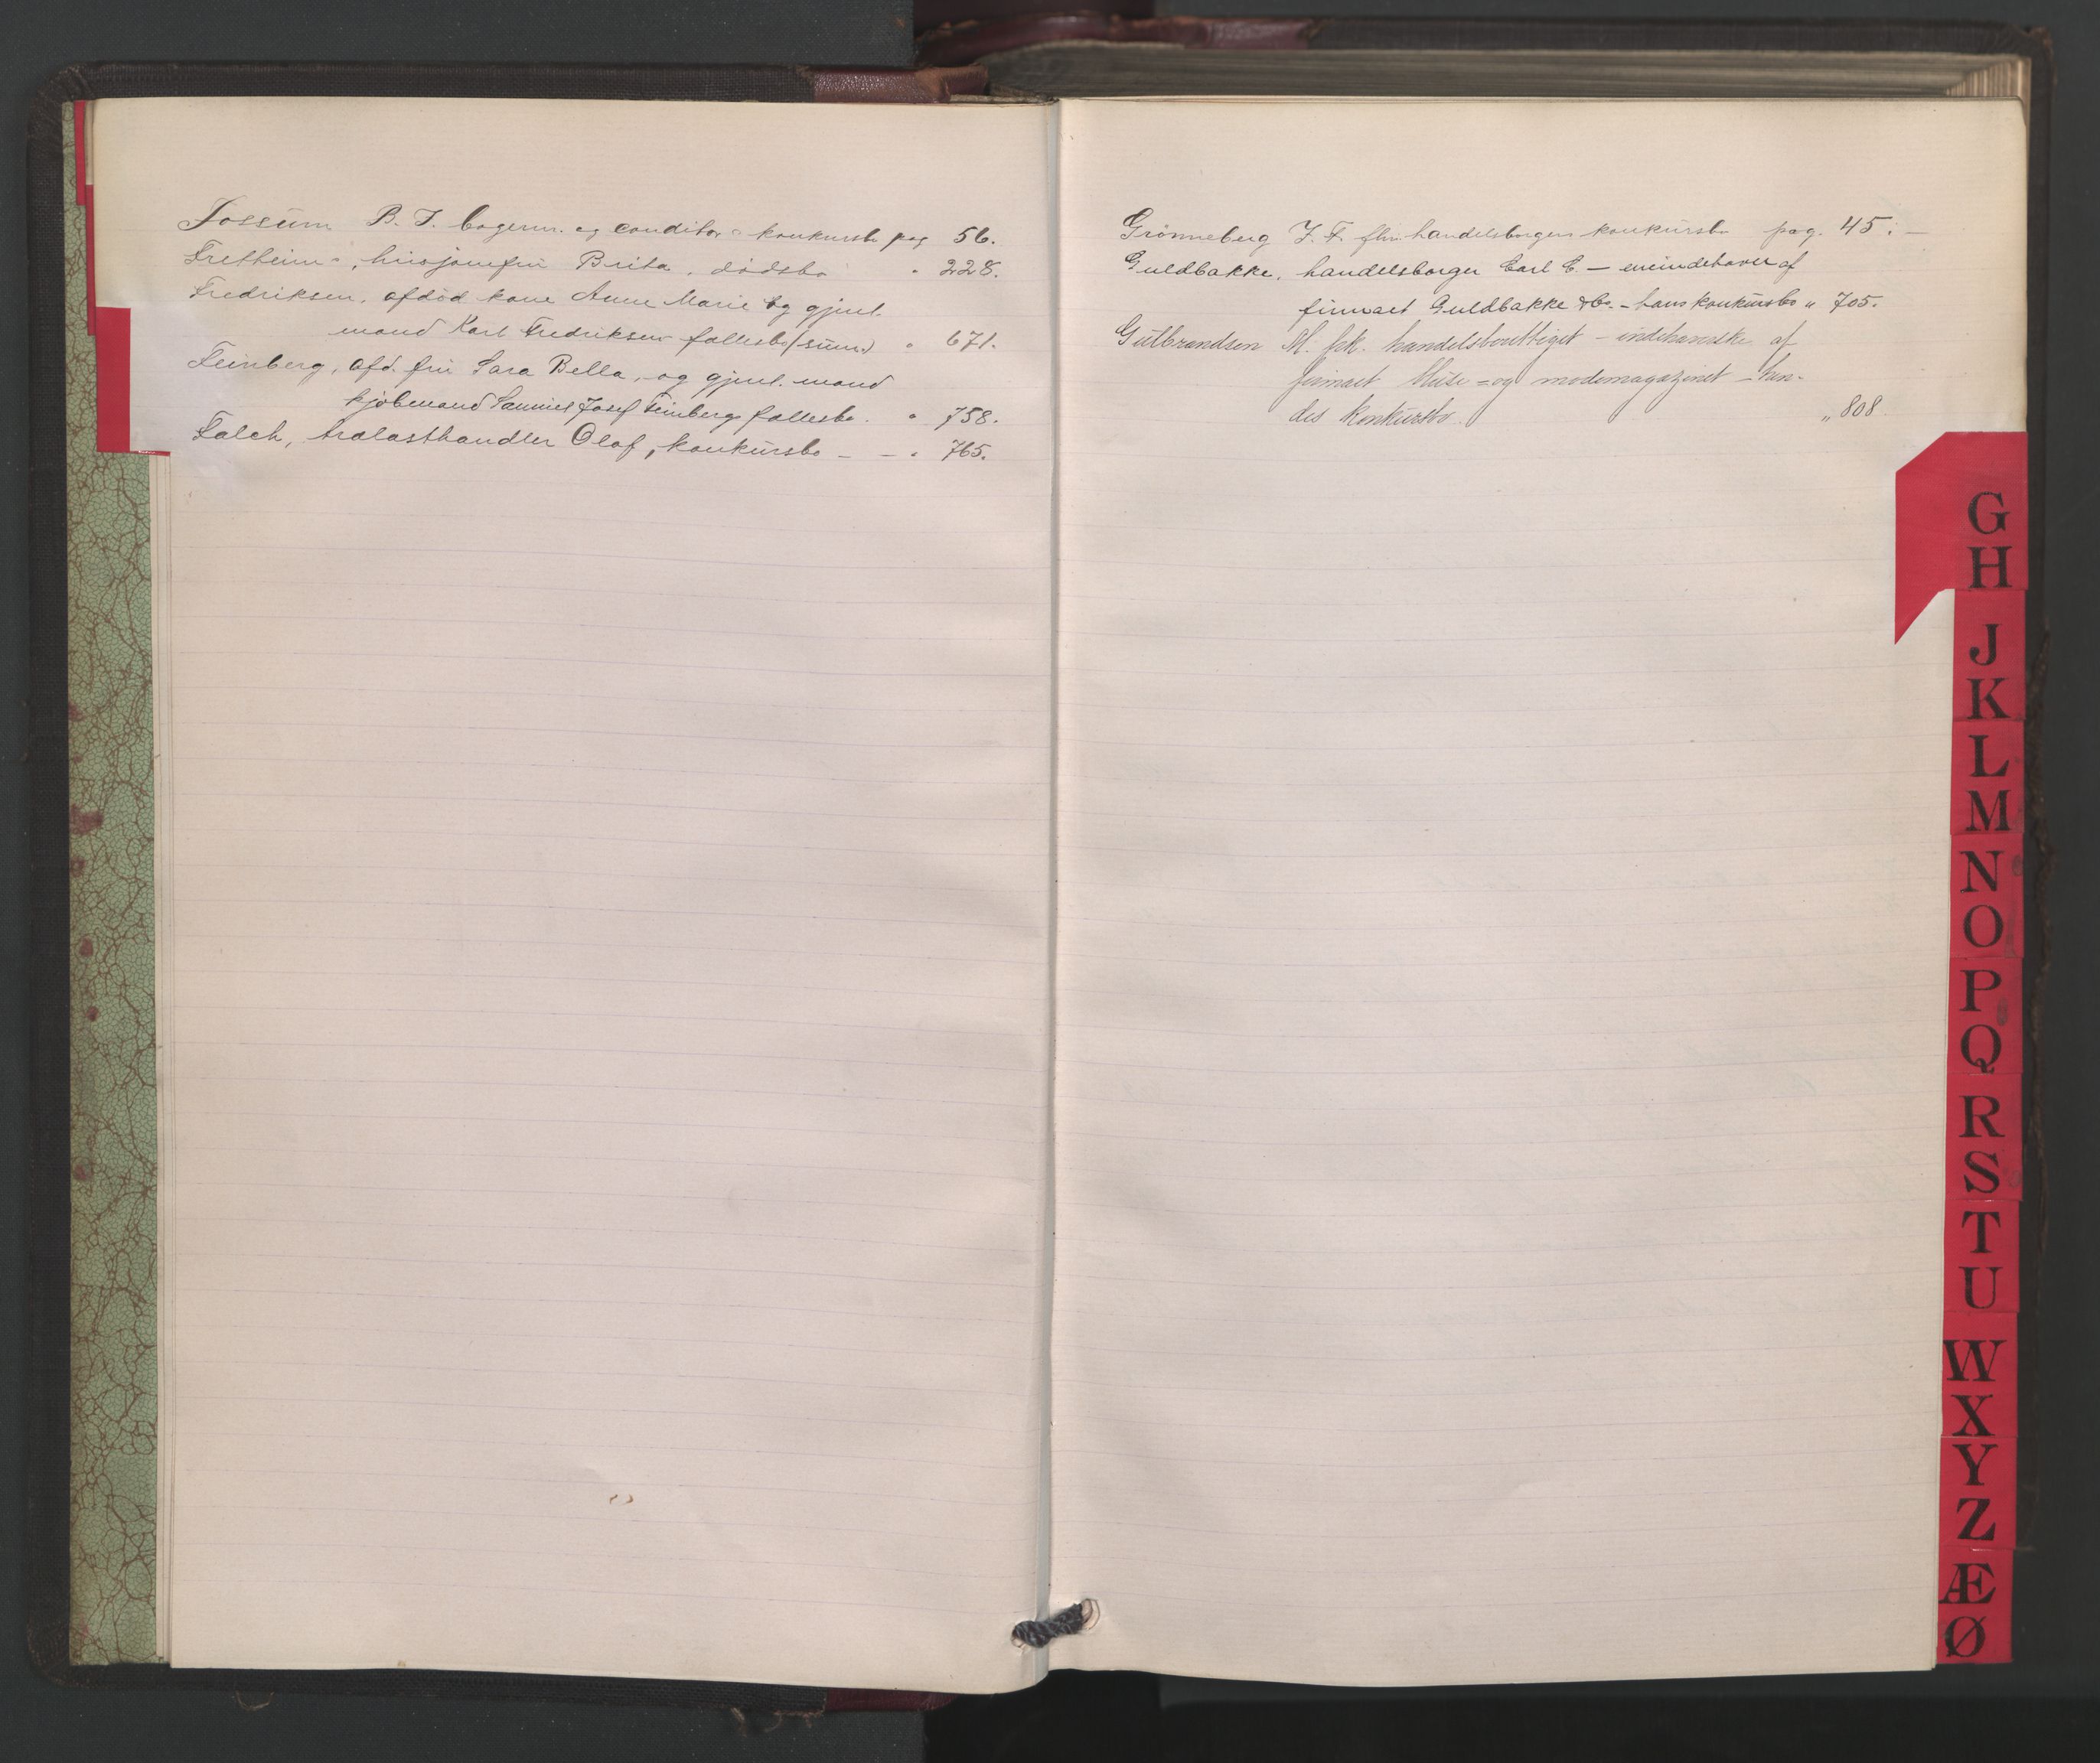 Fossum B. T. bagerm. og conditor - konkursbo pag 56.
Fretheim, husjomfru Brita, dödsbo " 228.
Fredriksen, afdöd kone Anne Marie og gjenl.
mand Karl Fredriksens fallesbo (sum.) " 671.
Feinberg, afd. fru Sara Bella, og gjenl. mand
kjöbmand Samuel Josef Feinbergs fallesbo. " 758.
Falch, tralasthandler Olaf, konkursbo - - " 765.
Grönneberg J. F. fhv. handelsborgers konkursbo pag. 45.
Guldbakke, handelsborger Carl E. - eneindehaver af
firmaet Guldbakke & Co. - hans konkursbo " 705.
Gulbrandsen M. frk. handelsberettiget - indehaverske af
firmaet bluse = og modemagazinet - hen-
des konkursbo. " 808
G
H
J
K
L
M
N
O
P
Q
R
S
T
U
W
X
Y
Z
Æ
Ø